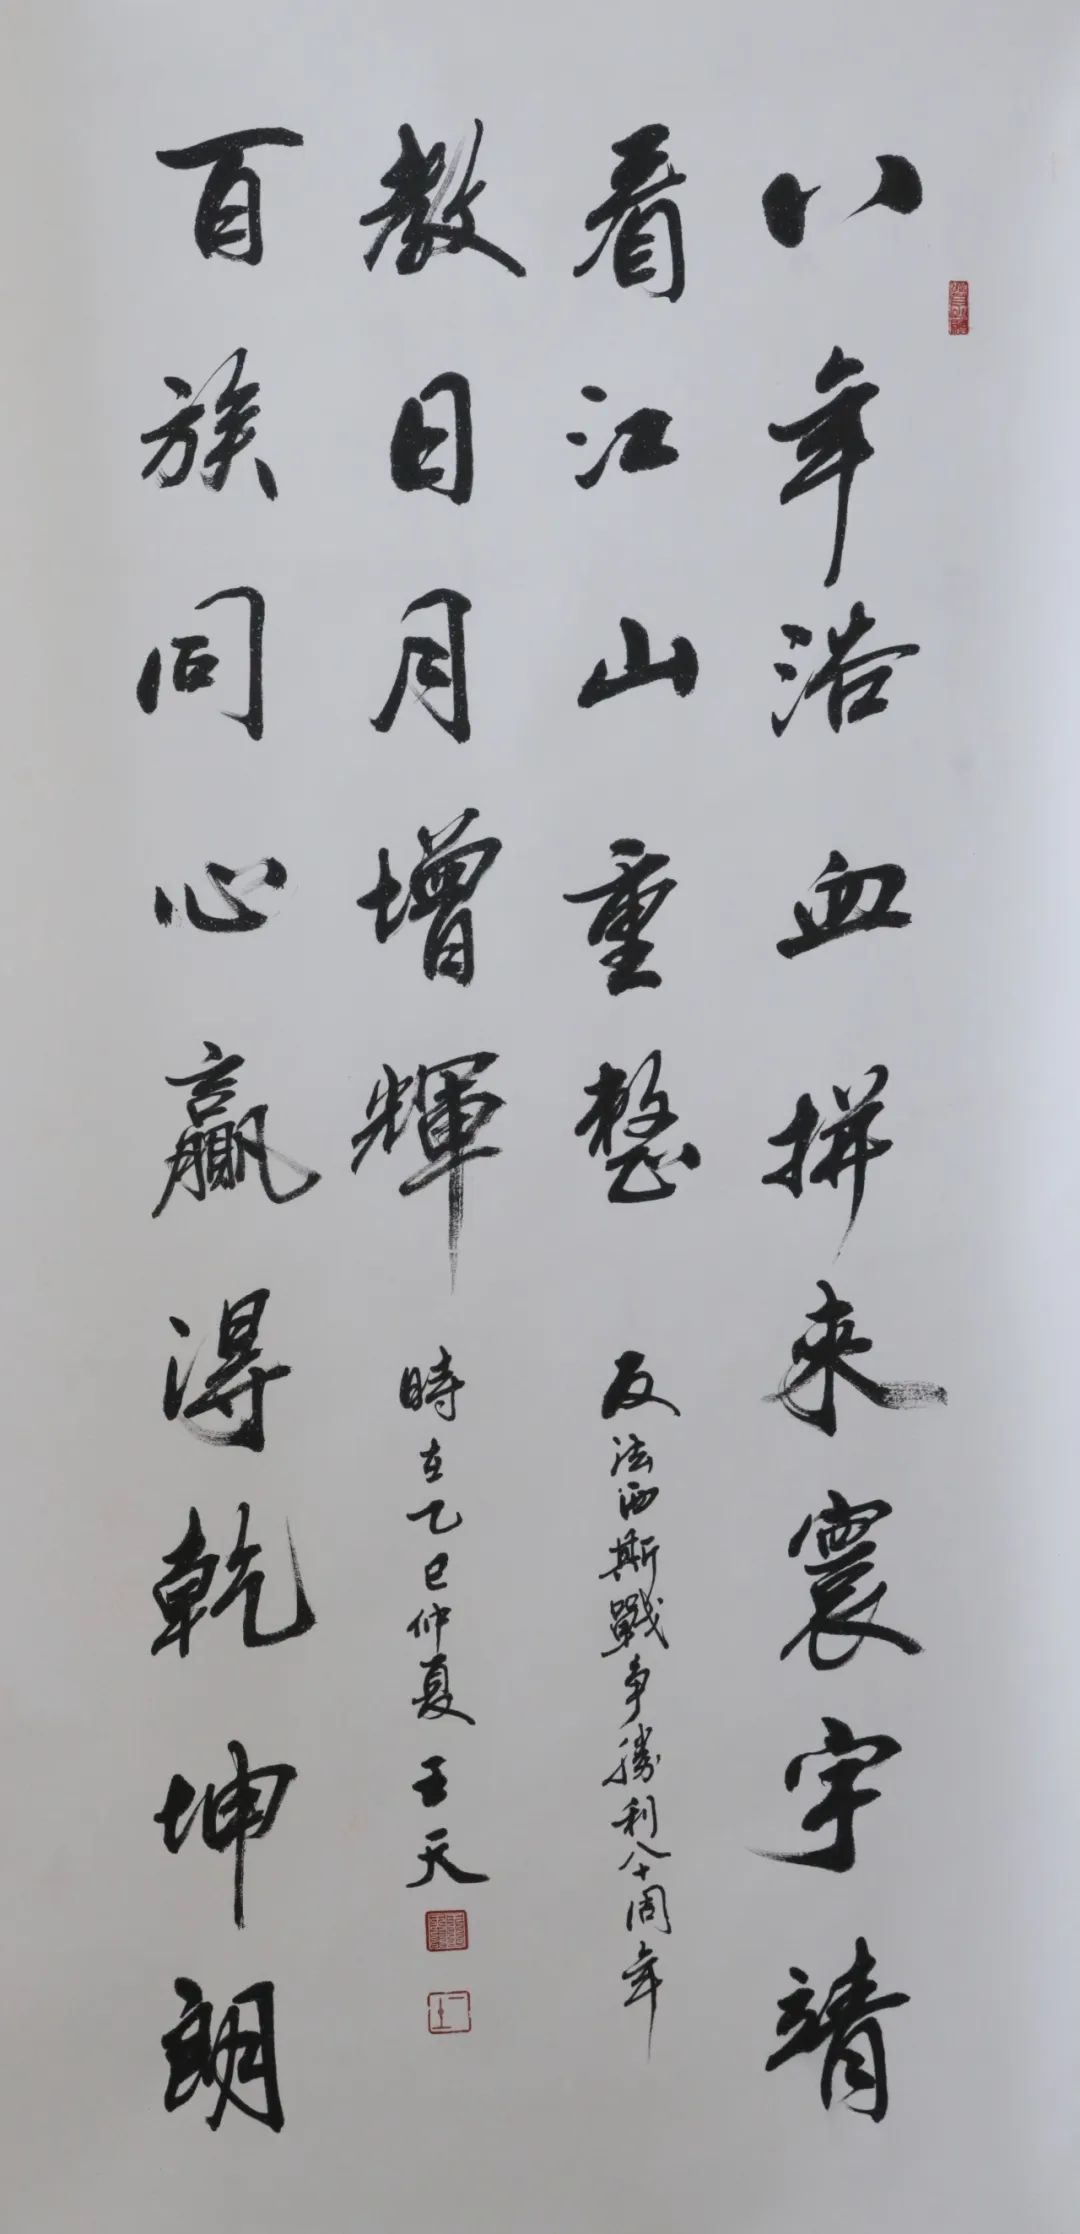 八年浴血拼来寰宇靖
看江山重整
反法西斯戰争勝利八十周年
百族同心贏得乾坤朗
教日月增輝
時在乙巳仲夏 王天